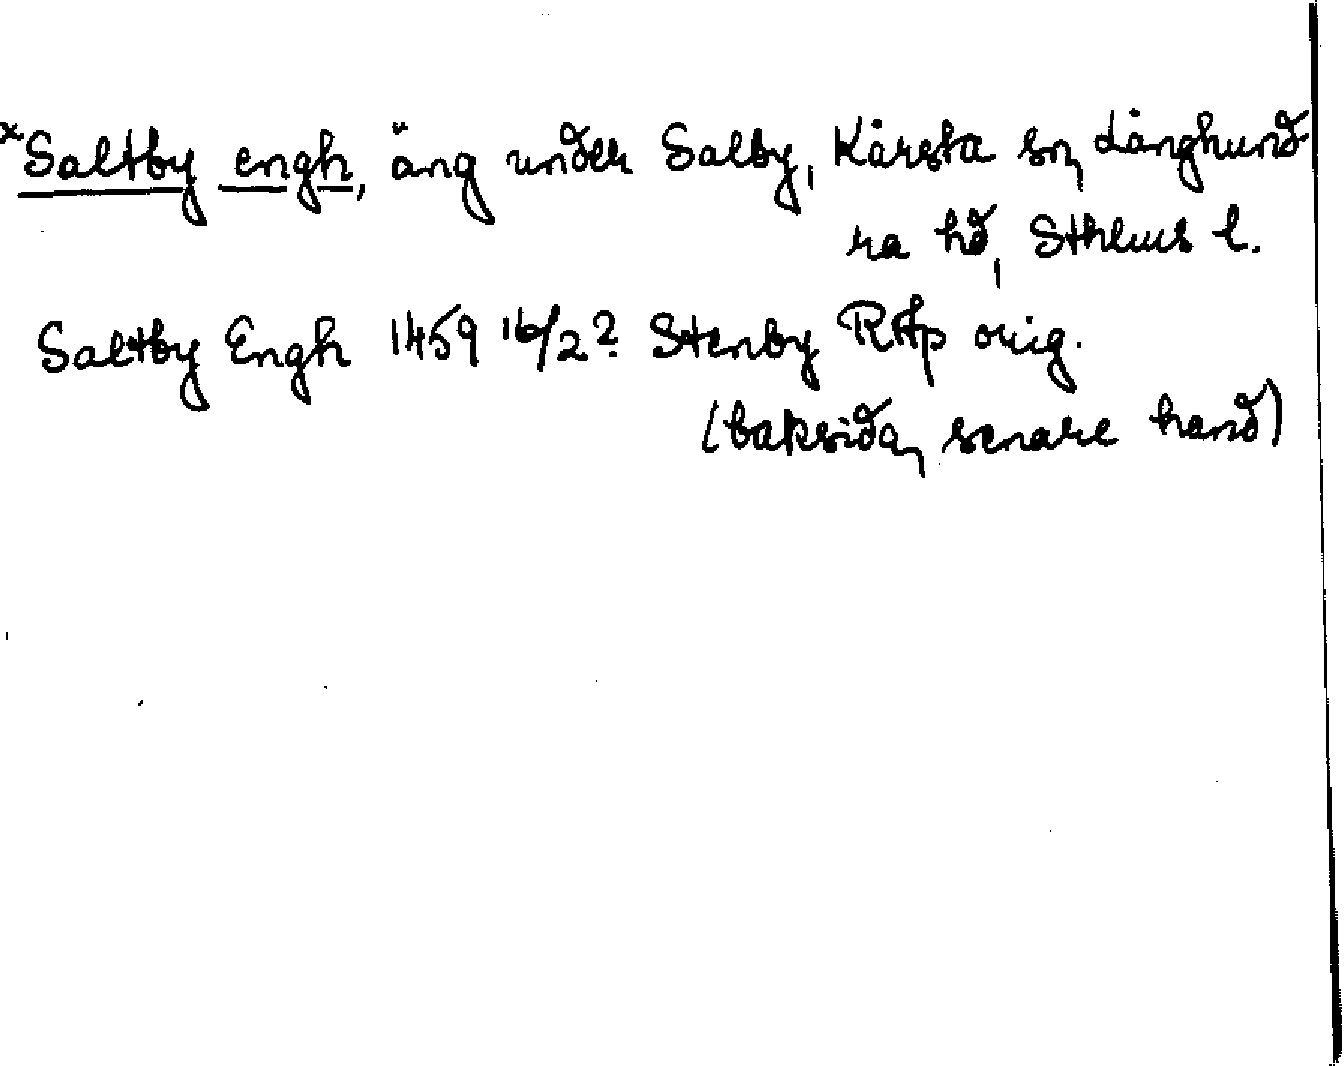 ×Saltby engh, äng under Salby, Kårsta sn, Långhund
ra hd, Sthlms l.
Saltby Engh 1459 16/2? Stenby RAp orig.
(baksida, senare hand)